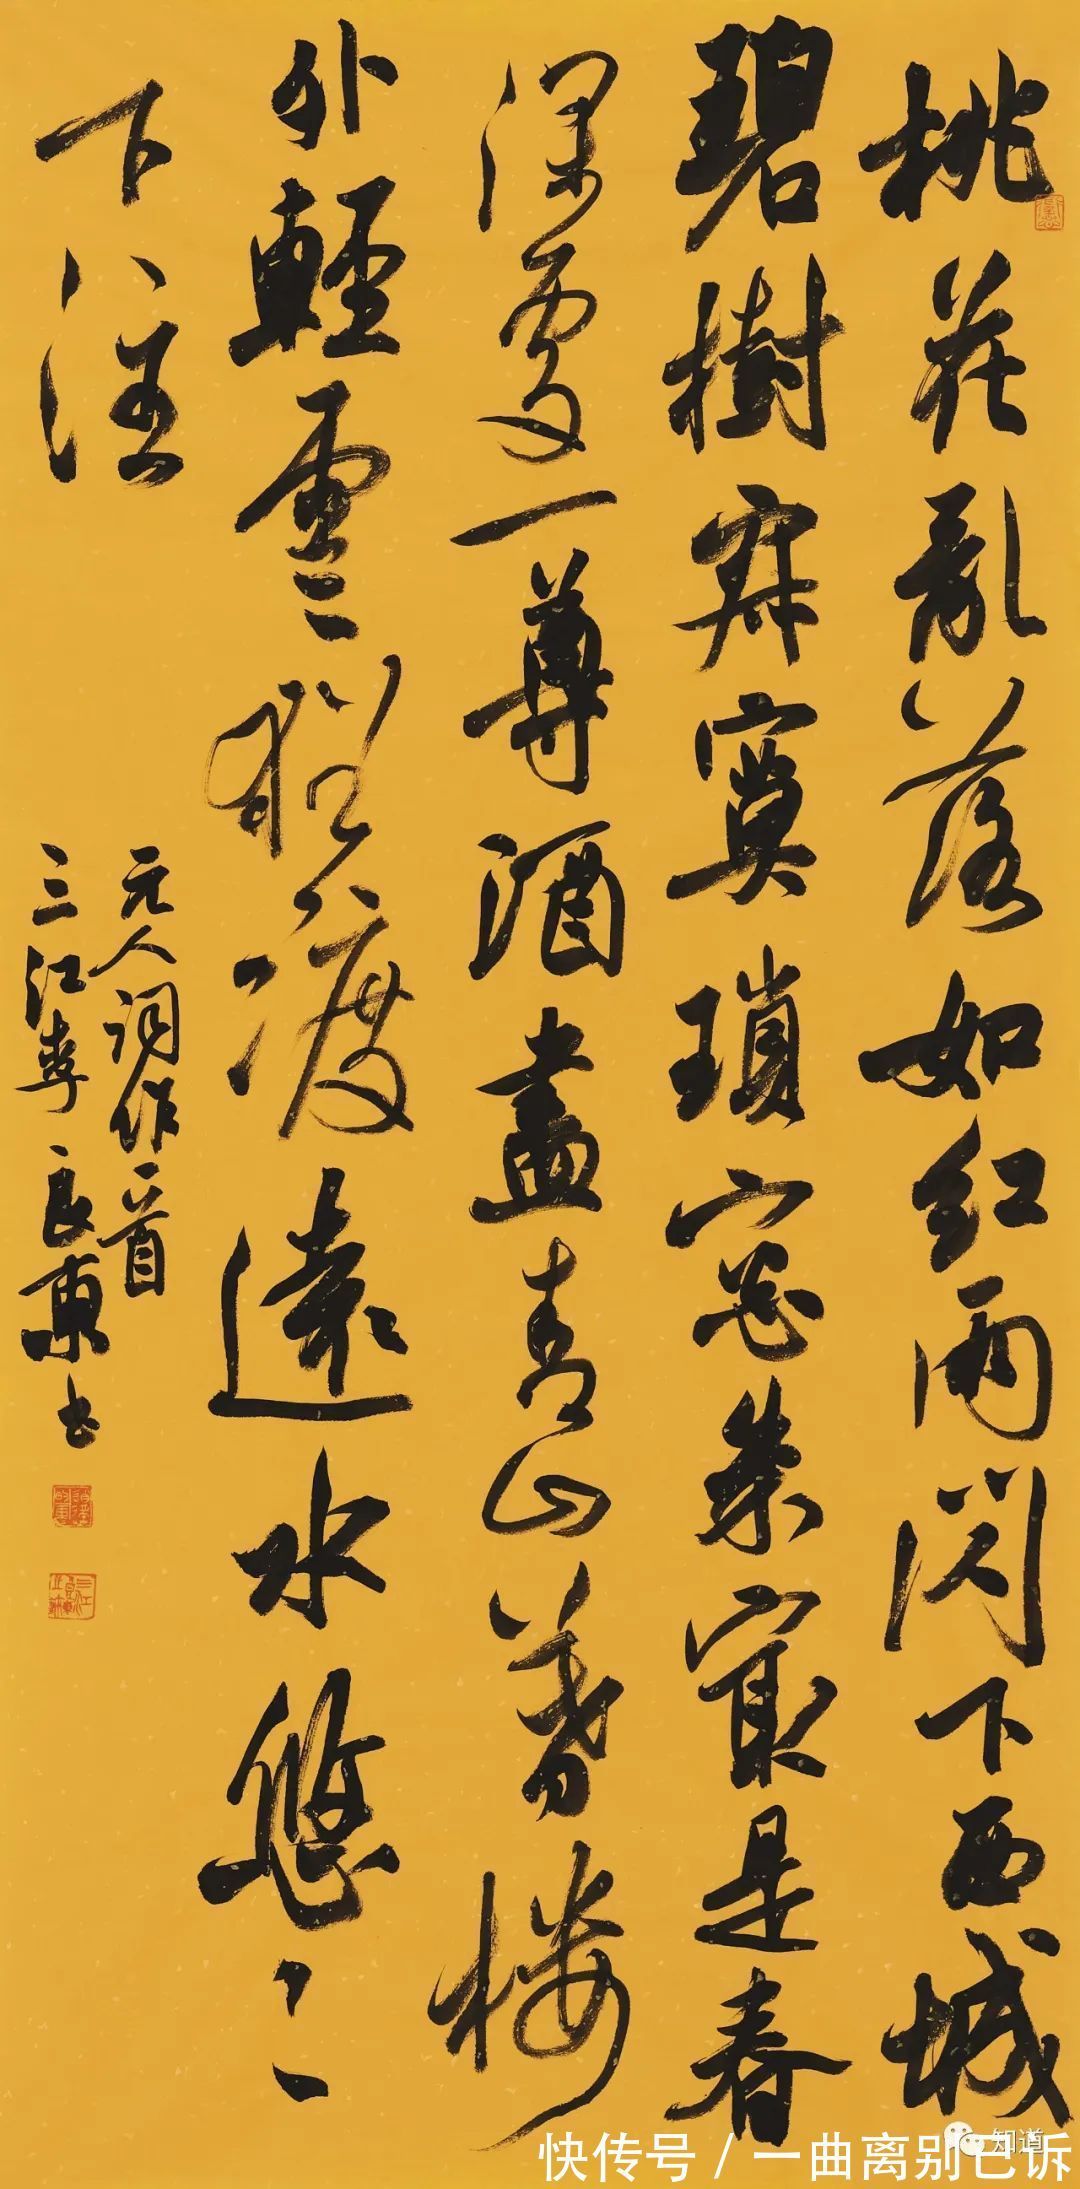 桃花亂落如红雨閃下西城
碧樹寂寞瑣窓朱㝡是春
深處一尊酒盡青山暮楼
外輕雲〻猶渡遠水悠〻
下注
元人词作一首
三江李良東书
知道
快传号 / 一曲离别已诉